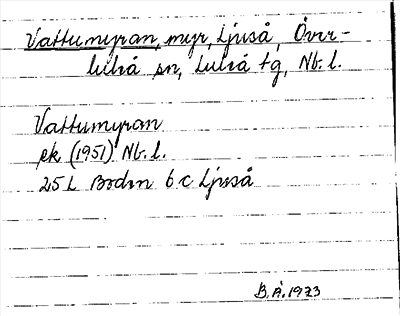 Vattumyran, myr, Ljuså, Över-
luleå sn, Luleå tg, Nb. l.
Vattumyran
ek (1951) Nb. l.
25 L Boden 6 c Ljuså
B. Å. 1973